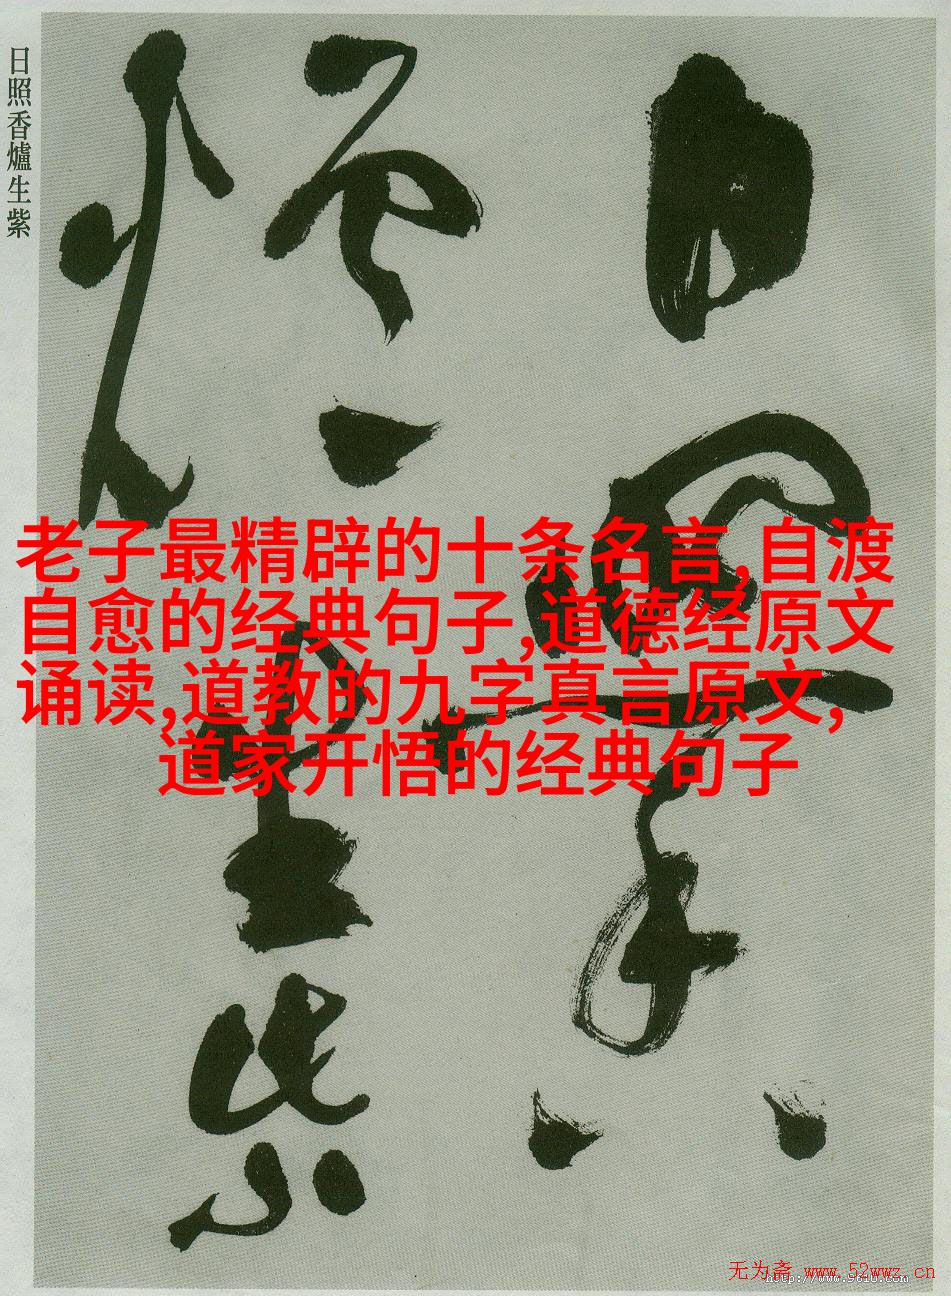 日照香爐生紫
日照香
爐生紫
老子最精辟的十条名言,自渡
自愈的经典句子,道德经原文
诵读,道教的九字真言原文,
道家开悟的经典句子
无为斋 www.52wwz.cn
http://www.9610.com